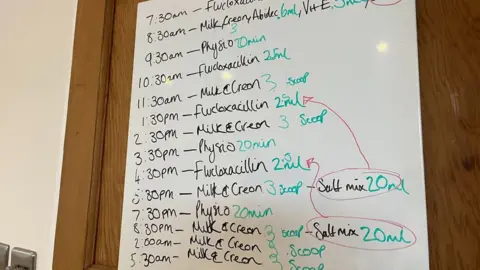 7:30am - Flucloxa
8:30am - Milk, Creon, Abidec, 6ml, Vit E, 5ml
3
9:30am - Physio 20min
10:30am - Flucloxacillin 2.5ml
11:30am - Milk & Creon 3 scoop
1:30pm - Flucloxacillin 2.5ml
2:30pm - Milk & Creon 3 Scoop
3:30pm - Physio 20min
4:30pm - Flucloxacillin 2.5ml
5:30pm - Milk & Creon 3 scoop - Salt mix 20ml
7:30pm - Physio 20min
8:30pm - Milk & Creon 3 scoop - Salt mix 20ml
2:00am - Milk & Creon 3 Scoop
5:30am - Milk & Creon 3 Scoop